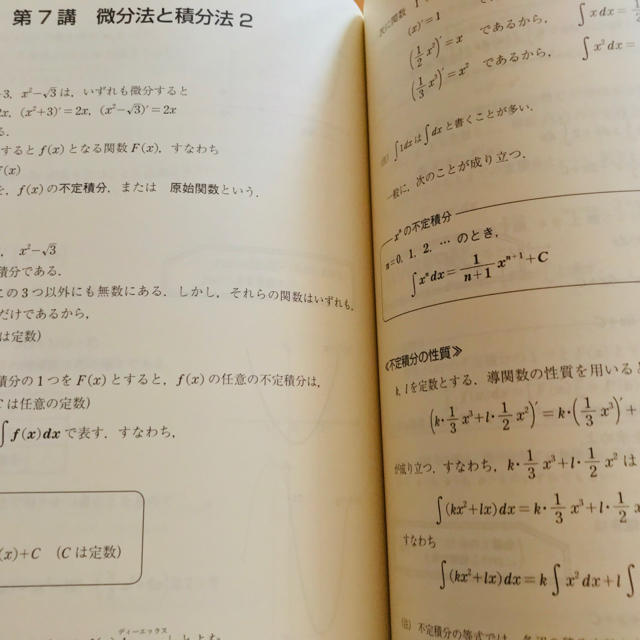 第7講 微分法と積分法2
+3, x²−√3 は，いずれも微分すると
2x, (x²+3)′=2x, (x²−√3)′=2x
る．
すると f(x) となる関数 F(x)，すなわち
(x)
を，f(x) の不定積分，または 原始関数という．
, x²−√3
積分である．
この3つ以外にも無数にある．しかし，それらの関数はいずれも，
だけであるから，
は定数)
積分の1つを F(x) とすると，f(x) の任意の不定積分は，
C は任意の定数)
∫f(x)dx で表す．すなわち，
(x)+C (C は定数)
ディーエックス
次に関数
(x)′=1
∫x dx=
(1/2 x²)′=x であるから，
∫x²dx=
(1/3 x³)′=x² であるから，
(注) ∫1dx は ∫dx と書くことが多い．
一般に，次のことが成り立つ．
xⁿ の不定積分
n=0, 1, 2, … のとき，
∫xⁿdx= 1/(n+1) xⁿ⁺¹+C
≪不定積分の性質≫
k, l を定数とする．導関数の性質を用いると
(k・1/3 x³+l・1/2 x²)′=k・(1/3 x³)′+
が成り立つ．すなわち，k・1/3 x³+l・1/2 x² は
∫(kx²+lx)dx=k・1/3 x³+l・1/2
すなわち
∫(kx²+lx)dx=k∫x²dx+l∫
(注) 不定積分の等式では，